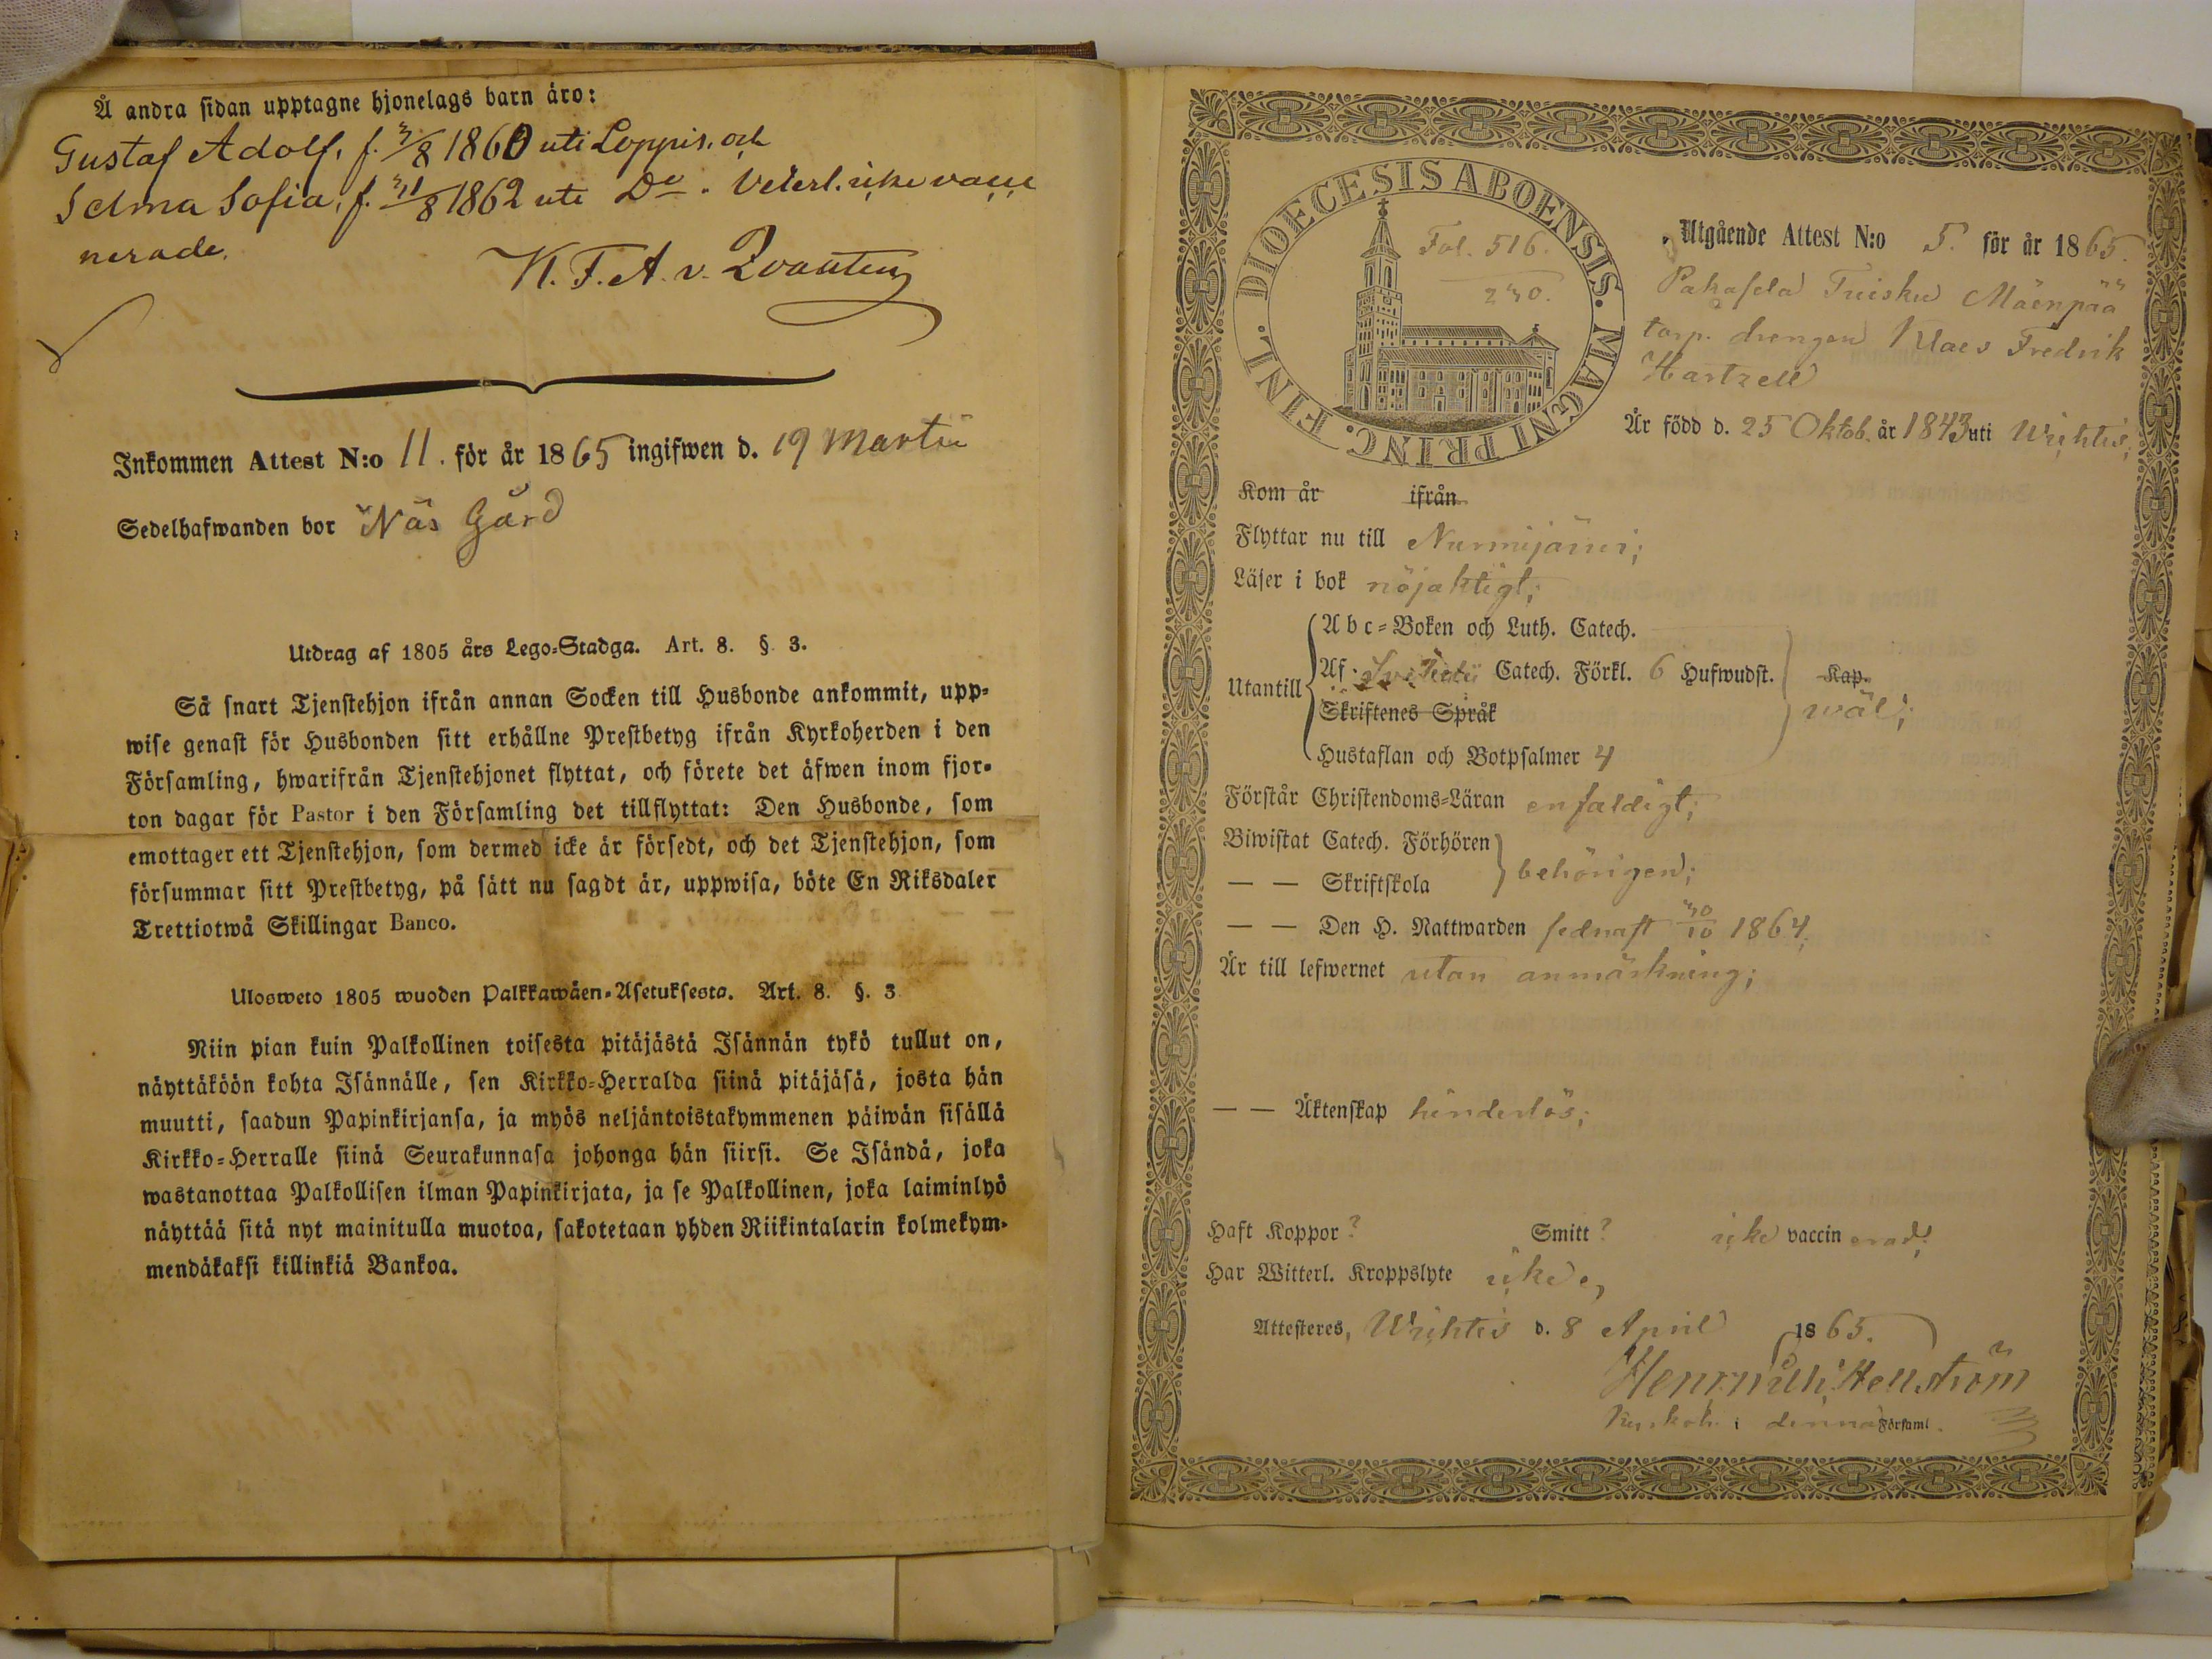 Å andra sidan upptagne hjonelags barn äro:
Gustaf Adolf, f. 3/8 1860 uti Loppis, och
Selma Sofia, f. 31/8 1862 uti Do. Veterl. icke vacci
nerade.
K. F. A. v. Qvanten
Inkommen Attest N:o 11. för år 1865 ingifwen d. 19 Martii
Sedelhafwanden bor Näs Gård
Utdrag af 1805 års Lego-Stadga. Art. 8. § 3.
Så snart Tjenstehjon ifrån annan Socken till Husbonde ankommit, upp-
wise genast för Husbonden sitt erhållne Prestbetyg ifrån Kyrkoherden i den
Församling, hwarifrån Tjenstehjonet flyttat, och förete det äfwen inom fjor-
ton dagar för Pastor i den Församling det tillflyttat: Den Husbonde, som
emottager ett Tjenstehjon, som dermed icke är försedt, och det Tjenstehjon, som
försummar sitt Prestbetyg, på sätt nu sagdt är, uppwisa, böte En Riksdaler
Trettiotwå Skillingar Banco.
Ulosweto 1805 wuoden Palkkawäen-Asetuksesta. Art. 8. §. 3
Niin pian kuin Palkollinen toisesta pitäjästä Isännän tykö tullut on,
näyttäköön kohta Isännälle, sen Kirkko-Herralda siinä pitäjäsä, josta hän
muutti, saadun Papinkirjansa, ja myös neljäntoistakymmenen päiwän sisällä
Kirkko-Herralle siinä Seurakunnasa johonga hän siirsi. Se Isändä, joka
wastanottaa Palkollisen ilman Papinkirjata, ja se Palkollinen, joka laiminlyö
näyttää sitä nyt mainitulla muotoa, sakotetaan yhden Riikintalarin kolmekym-
mendäkaksi killinkiä Bankoa.
DIOECESIS ABOENSIS. MAGNI PRINC. FINL.
Fol. 516.
230.
Utgående Attest N:o 5. för år 1865.
Pakasela Tuisku Mäenpää
torp. drengen Klaes Fredrik
Hartzell
Är född d. 25 Oktob. år 1843 uti Wichtis;
Kom år ifrån
Flyttar nu till Nurmijärvi;
Läser i bok nöjaktigt;
Utantill
Abc-Boken och Luth. Catech.
Af Svebelii Catech. Förkl. 6 Hufwudst. Kap.
Skriftenes Språk
wäl;
Hustaflan och Botpsalmer 4
Förstår Christendoms-Läran enfaldigt;
Biwistat Catech. Förhören
— — Skriftskola
behörigen;
— — Den H. Nattwarden sednast 30/10 1864;
Är till lefwernet utan anmärkning;
— — Äktenskap hinderlös;
Haft Koppor? Smitt? icke vaccinerad;
Har Witterl. Kroppslyte icke,
Attesteres, Wichtis d. 8 April 1865.
Henrik Hellström
Kyrkoh. i denna Församl.